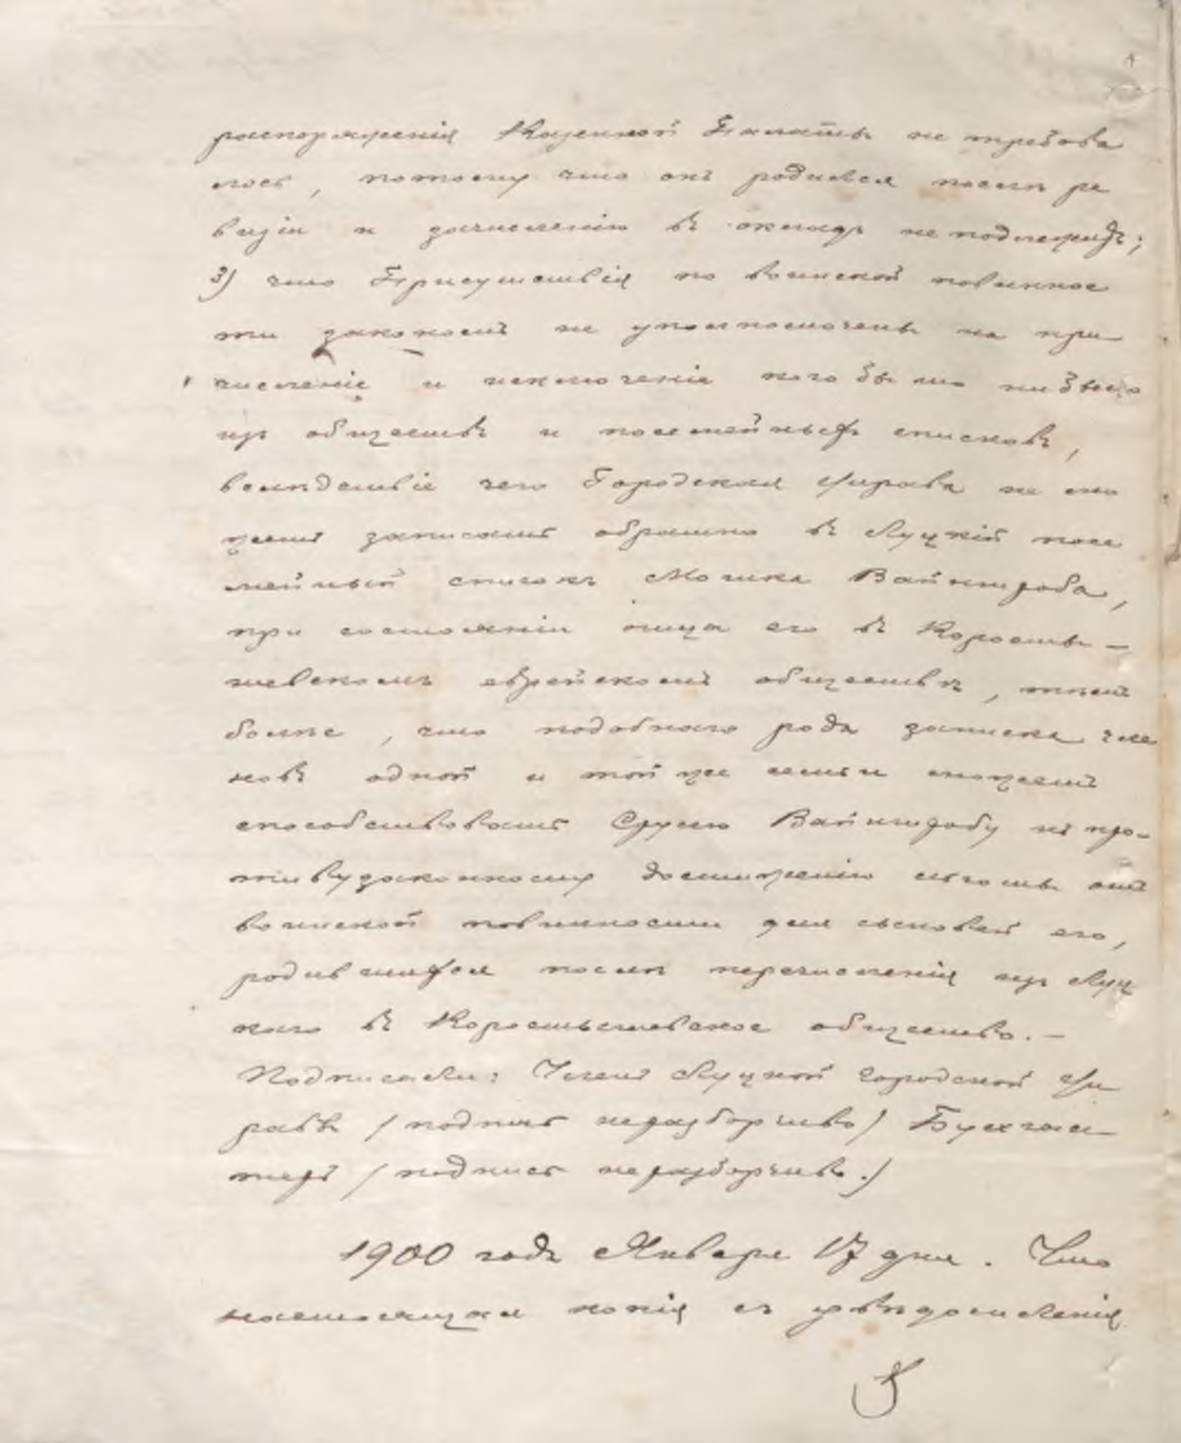 распоряженія Казенной Палаты не требова
лось, потому что онъ родился послѣ ре
визіи и зачисленію въ окладъ не подлежитъ;
3) что Присутствія по воинской повиннос
ти закономъ не уполномочены на при
численіе и исключеніе кого бы то ни было
изъ обществъ и посемейныхъ списковъ,
вслѣдствіе чего Городская Управа не мо
жетъ записать обратно въ Луцкій посе
мейный списокъ Мошка Вайншроба,
при состояніи отца его въ Коросты-
шевскомъ еврейскомъ обществѣ, тѣмъ
болѣе, что подобнаго рода записка чле
новъ одной и той же семьи можетъ
способствовать Срулю Вайншробу къ про-
тивузаконному достиженію льготы отъ
воинской повинности для сыновей его,
родившихся послѣ перечисленія изъ Луц
каго въ Коростышевское общество.-
Подписали: Членъ Луцкой Городской Уп
равы (подпись неразборчиво) Бухгал-
теръ (подпись неразборчив.)
1900 года Января 17 дня. Что
настоящая копія съ увѣдомленія